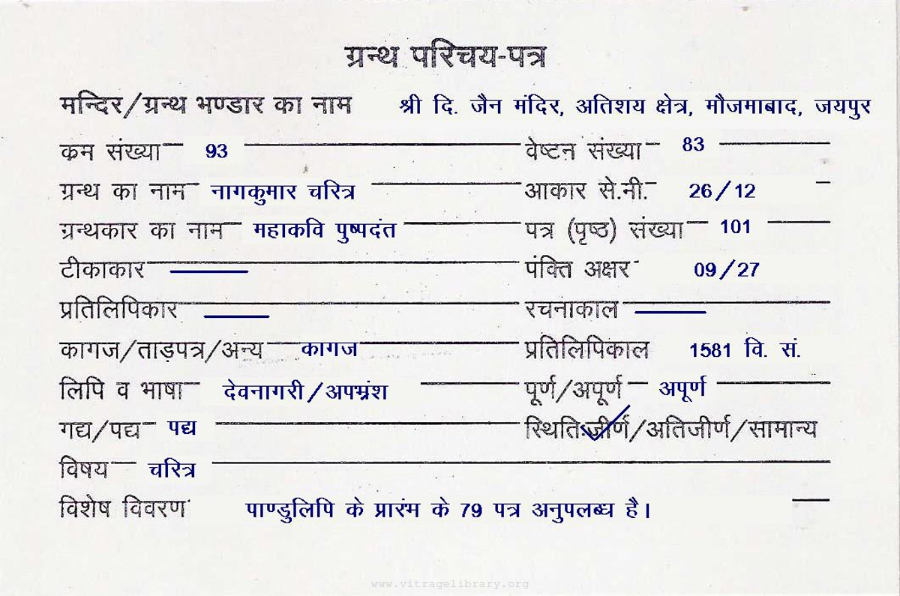 ग्रन्थ परिचय-पत्र
मन्दिर/ग्रन्थ भण्डार का नाम श्री दि. जैन मंदिर, अतिशय क्षेत्र, मौजमाबाद, जयपुर
कम संख्या 93 वेष्टन संख्या 83
ग्रन्थ का नाम नागकुमार चरित्र आकार से.नी. 26/12
ग्रन्थकार का नाम महाकवि पुष्पदंत पत्र (पृष्ठ) संख्या 101
टीकाकार पंक्ति अक्षर 09/27
प्रतिलिपिकार रचनाकाल
कागज/ताड़पत्र/अन्य कागज प्रतिलिपिकाल 1581 वि. सं.
लिपि व भाषा देवनागरी/अपभ्रंश पूर्ण/अपूर्ण अपूर्ण
गद्य/पद्य पद्य स्थितिः जीर्ण/अतिजीर्ण/सामान्य
विषय चरित्र
विशेष विवरण पाण्डुलिपि के प्रारंभ के 79 पत्र अनुपलब्ध है।
www.vitragelibrary.org